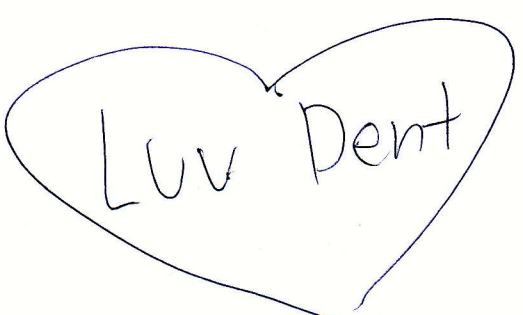 Luv Dent